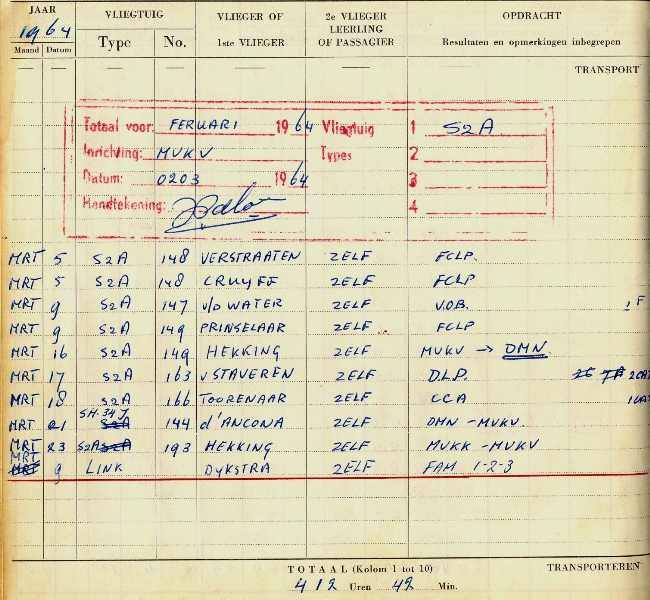 JAAR VLIEGTUIG VLIEGER OF 2e VLIEGER OPDRACHT
1964 LEERLING
Maand Datum Type No. 1ste VLIEGER OF PASSAGIER Resultaten en opmerkingen inbegrepen
TRANSPORT
Totaal voor: FERUARI 1964 Vliegtuig 1 S2A
Inrichting: MVKV Types 2
Datum: 0203 1964 3
Handtekening: 4
MRT 5 S2A 148 VERSTRAATEN ZELF FCLP.
MRT 5 S2A 148 CRUYFF ZELF FCLP
MRT 9 S2A 147 v/D WATER ZELF V.O.B. 1 F
MRT 9 S2A 149 PRINSELAAR ZELF FCLP
MRT 16 S2A 149 HEKKING ZELF MVKV → DMN
MRT 17 S2A 163 v STAVEREN ZELF D.L.P. 2CA
MRT 18 S2A 166 TOORENAAR ZELF CCA 1CA
MRT 21 SH.34 J S2A 144 d'ANCONA ZELF DMN - MVKV.
MRT 23 S2A S2A 193 HEKKING ZELF MVKK - MVKV
MRT MRT 9 LINK DYKSTRA ZELF FAM 1-2-3
TOTAAL (Kolom 1 tot 10) TRANSPORTEREN
412 Uren 42 Min.